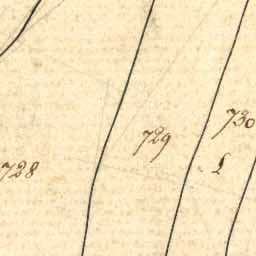 730
729
728